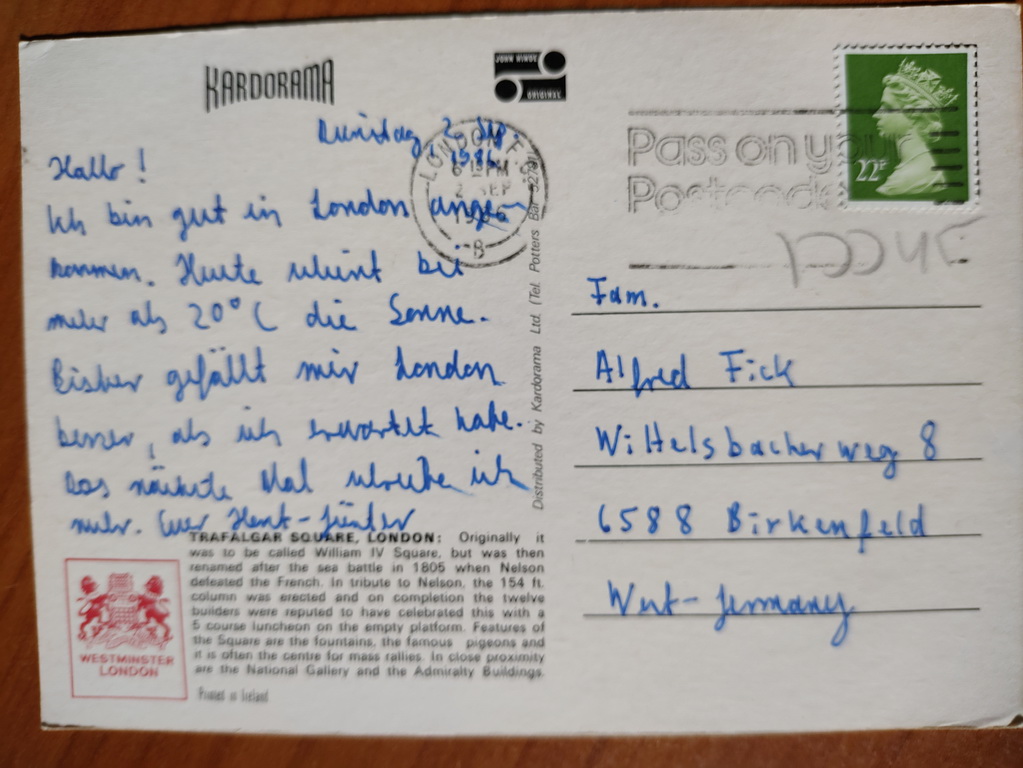 KARDORAMA
JOHN HINDE
ORIGINAL
Dienstag, 2. Sep.
1986
Hallo!
Ich bin gut in London ange-
kommen. Heute scheint bei
mehr als 20°C die Sonne.
Bisher gefällt mir London
besser, als ich erwartet habe.
Das nächste Mal schreibe ich
mehr. Euer
TRAFALGAR SQUARE, LONDON: Originally it
was to be called William IV Square, but was then
renamed after the sea battle in 1805 when Nelson
defeated the French. In tribute to Nelson, the 154 ft.
column was erected and on completion the twelve
builders were reputed to have celebrated this with a
5 course luncheon on the empty platform. Features of
the Square are the fountains, the famous pigeons and
it is often the centre for mass rallies. In close proximity
are the National Gallery and the Admiralty Buildings.
Printed in Ireland
WESTMINSTER
LONDON
Distributed by Kardorama Ltd. (Tel. Potters Bar
LONDON
PM
2 SEP
1986
B
Pass on your
Postcode
22P
Fam.
Alfred Fick
Wittelsbacher weg 8
6588 Birkenfeld
West-Germany